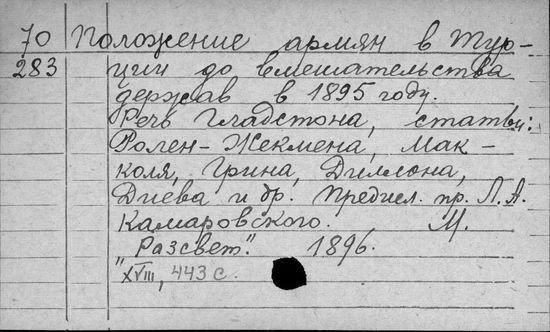 70 Положение армян в Тур-
283 ции до вмешательства
держав в 1895 году.
Речь Гладстона, статьи:
Ролен-Жекмена, Мак-
коля, Грина, Диллона,
Диева и др. Предисл. пр. Л. А.
Камаровского. М.
„Разсвет". 1896.
XVIII, 443 с.